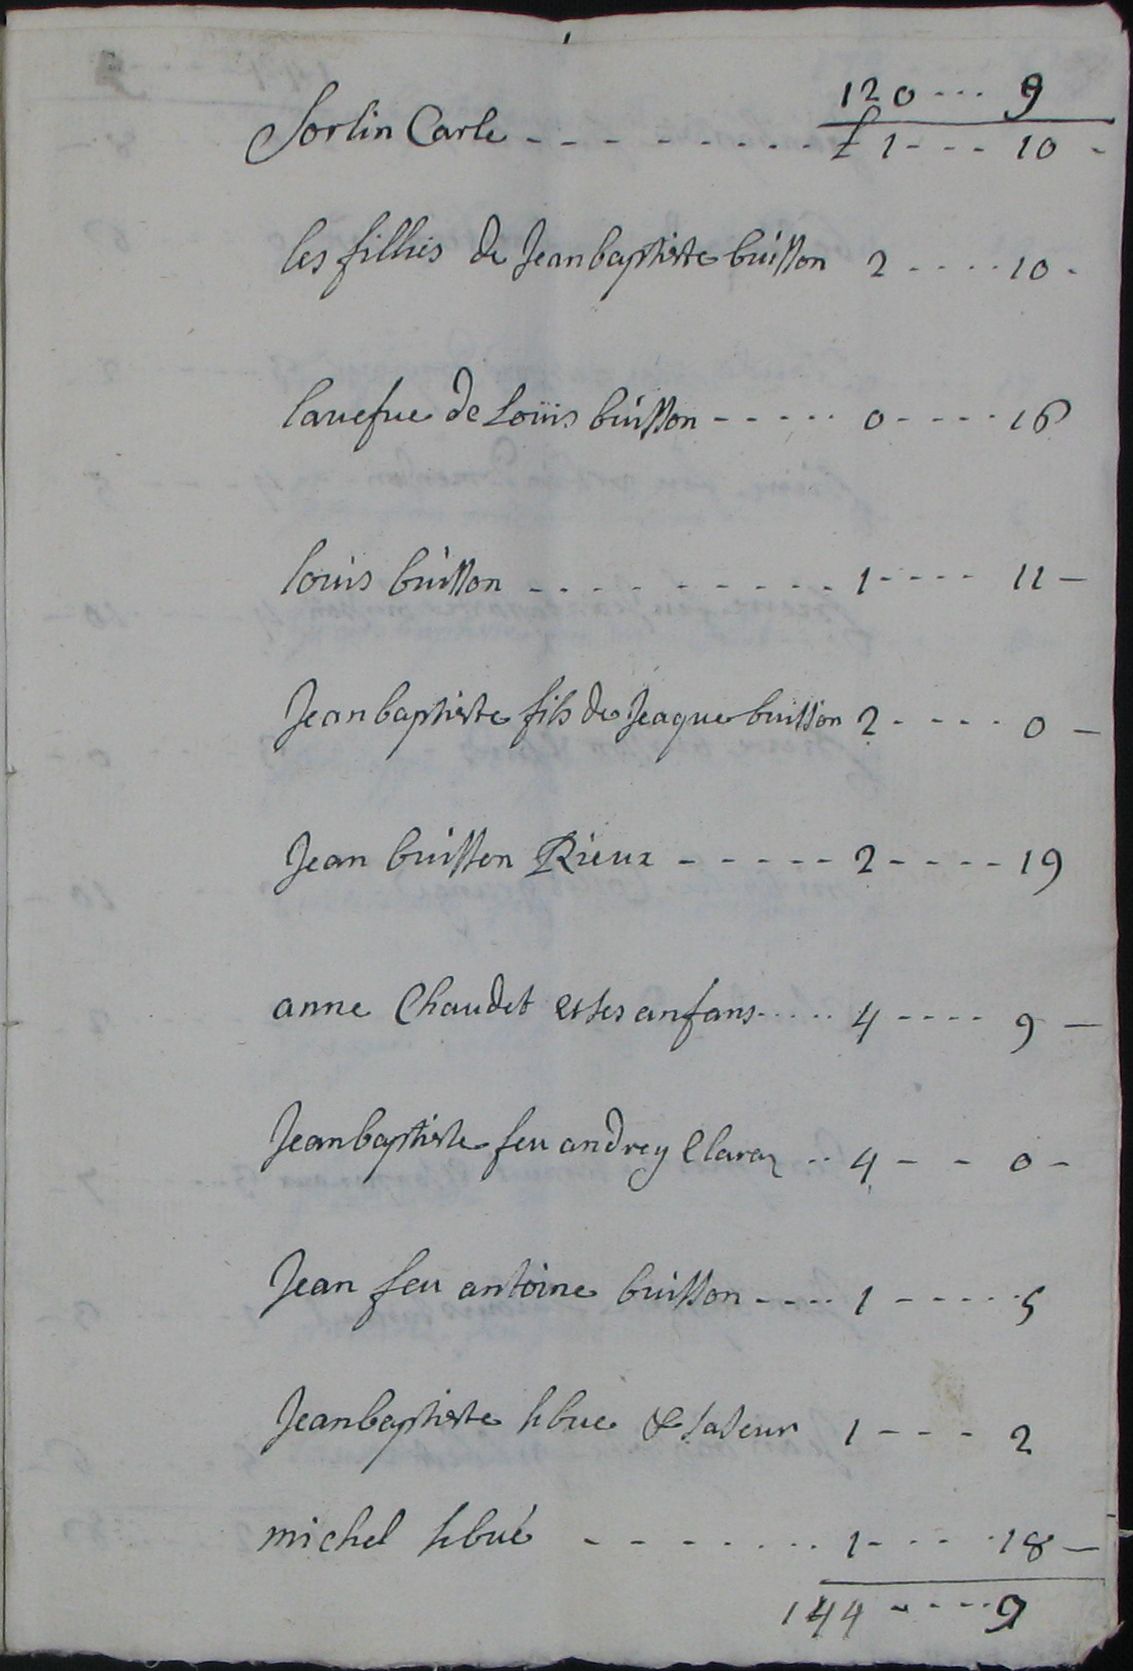 120 --- 9
Sorlin Carle - - - - - - - - £ 1 - - - 10 -
les filhies de Jean baptiste buisson 2 - - - - 10 -
lauefue de Loüis buisson - - - - - 0 - - - - 16
louis buisson - - - - - - - - - - 1 - - - - 11 -
Jean baptiste fils de Jeaque buisson 2 - - - - 0 -
Jean buisson Rieux - - - - - 2 - - - - 19
anne Chaudet et ses anfans - - - - 4 - - - - 9 -
Jean baptiste feu andrey Claraz - - 4 - - 0 -
Jean feu antoine buisson - - - - 1 - - - - - 5
Jean baptiste & saseur 1 - - - 2
michel - - - - - - - 1 - - - - 18 -
144 - - - - 9